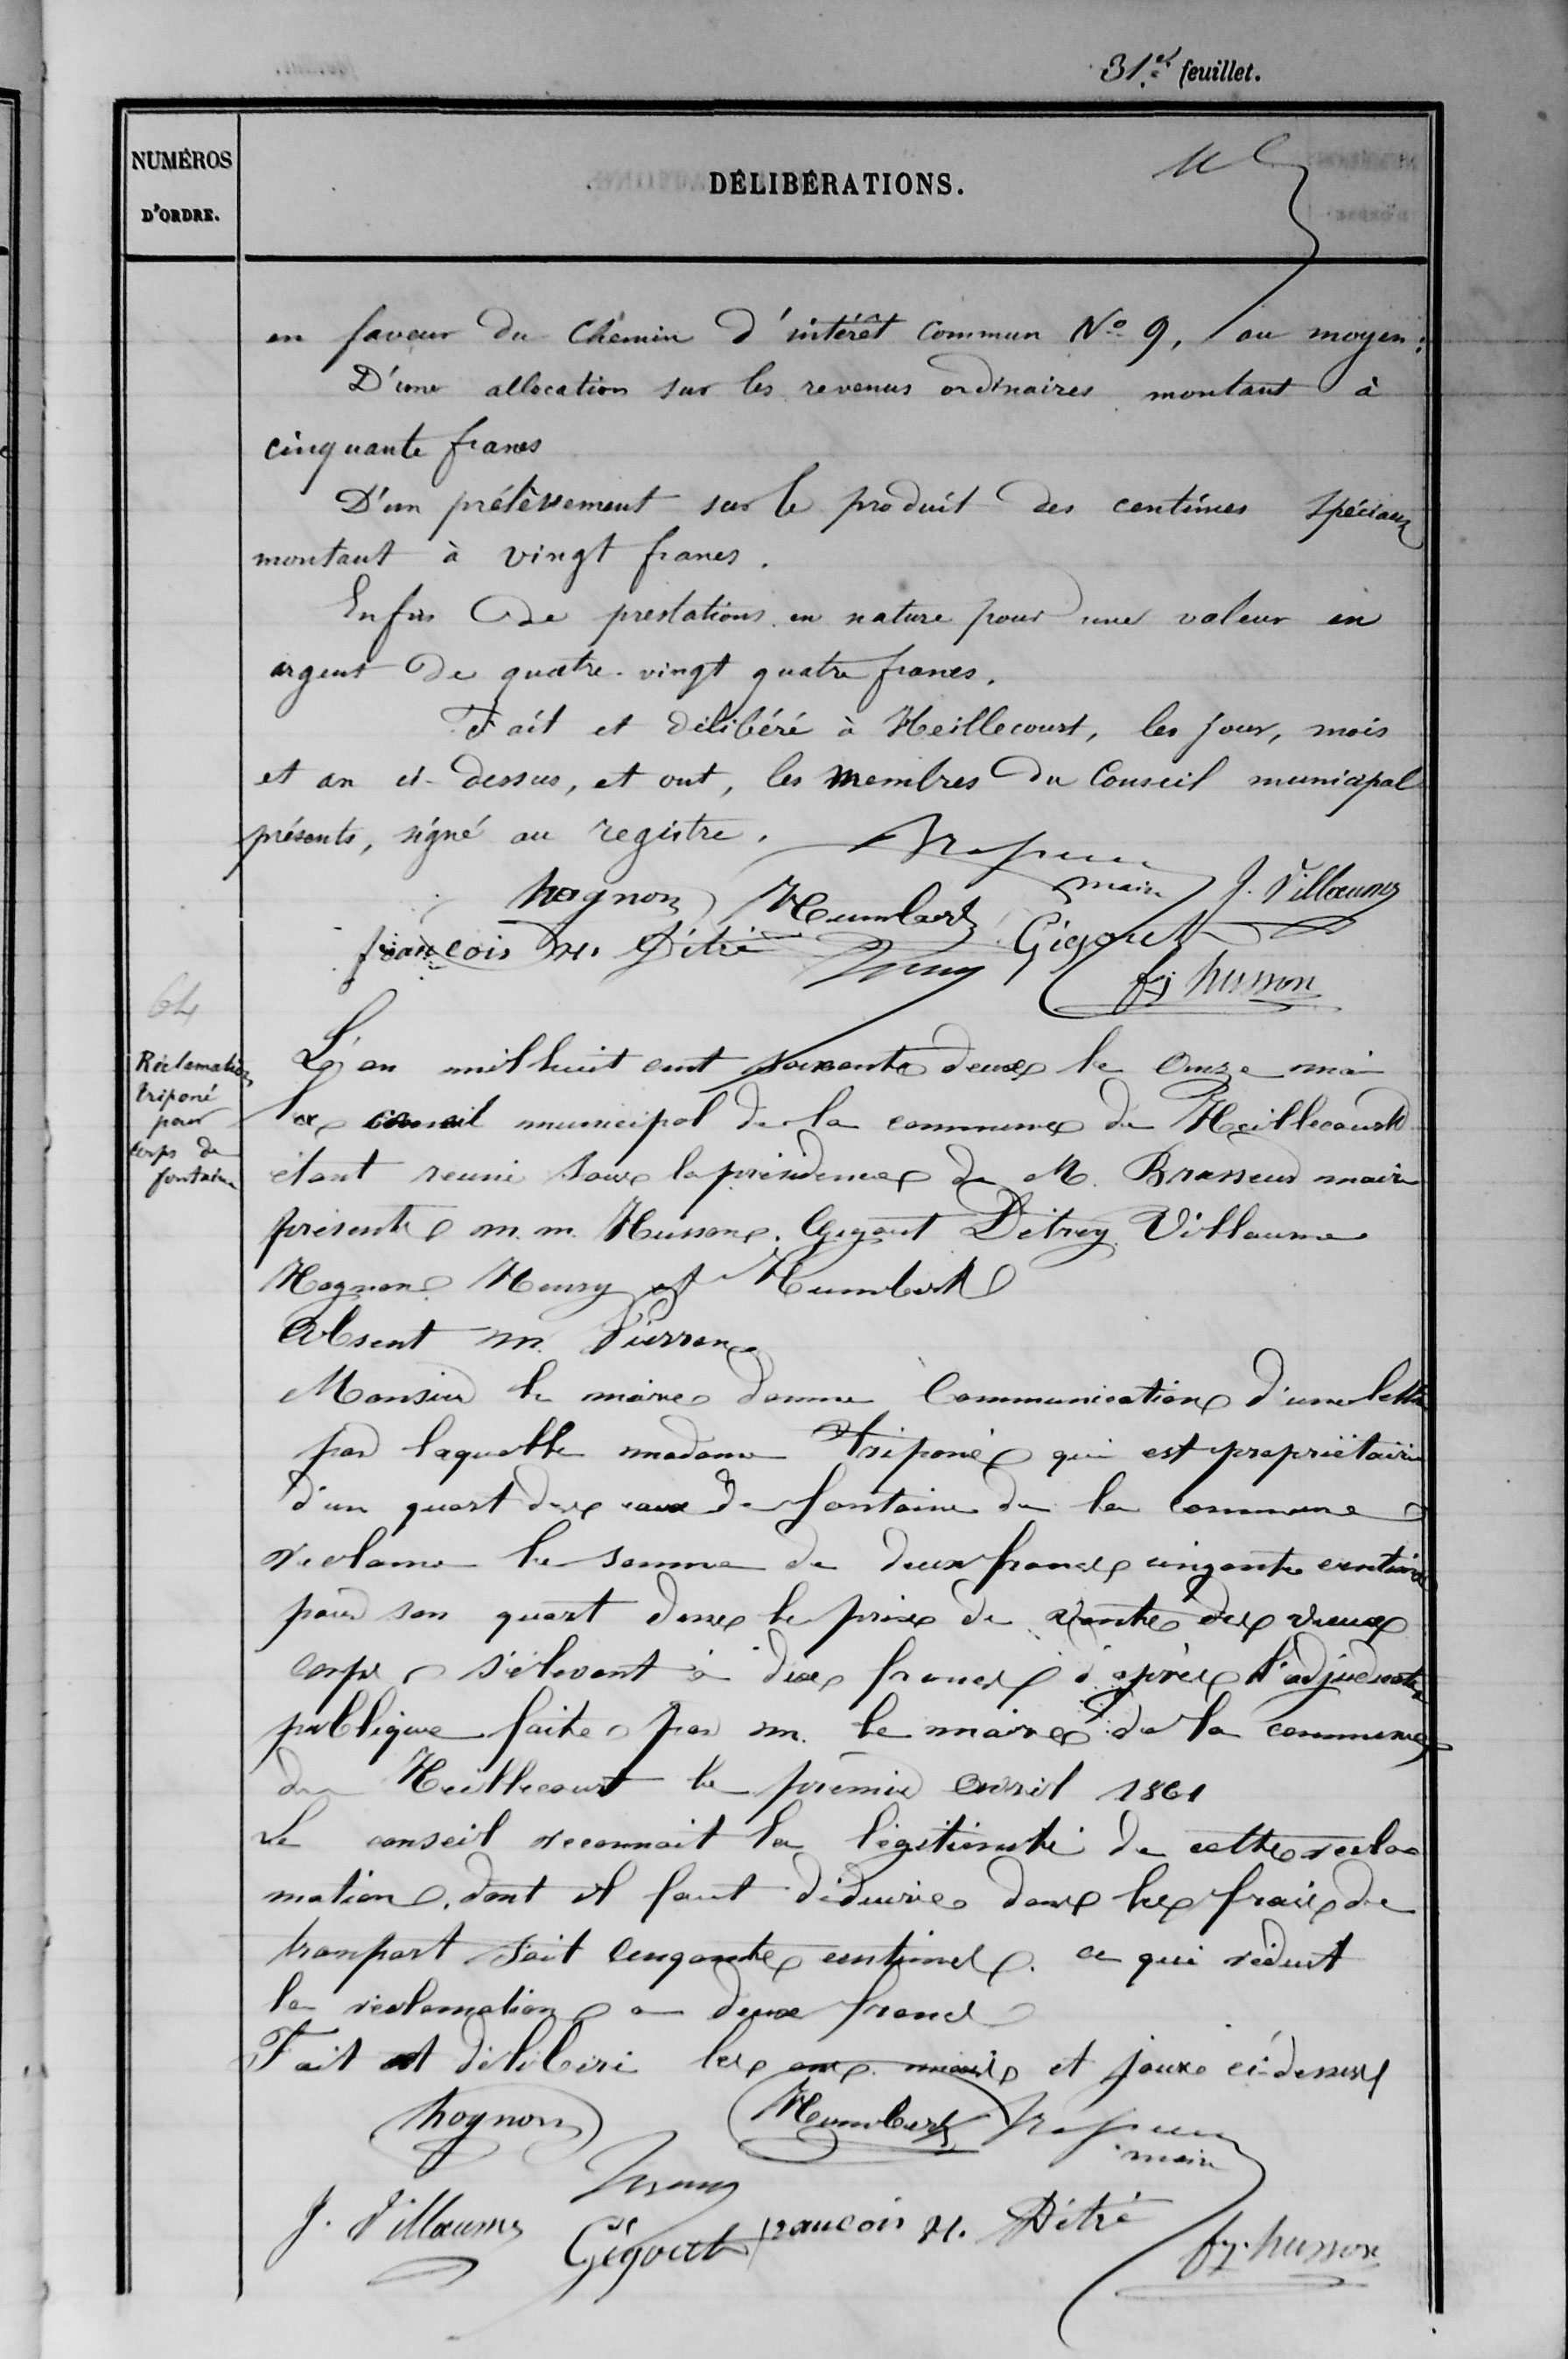 31.e feuillet.
NUMÉROS
D'ORDRE.
DÉLIBÉRATIONS.
en faveur du Chemin d'intérêt Commun No 9, au moyen :
D'une allocation sur les revenus ordinaires montant à
cinquante francs
D'un prélèvement sur le produit des centimes spéciaux
montant à vingt francs.
Enfin De prestations en nature pour une valeur en
argent de quatre-vingt quatre francs.
Fait et délibéré à Heillecourt, les jour, mois
et an ci-dessus, et ont, les Membres du Conseil municipal
présents, signé au registre.
maire J. Villaume
hognon Humbert Gigout
françois H. Détré
fs husson
64
Réclamation
triponé
pour
corps de
fontaine
L'an mil huit cent soixante deux le Onze mai
le conseil municipal de la commune de Heillecourt
étant reuni sous la présidence de M. Brasseur maire
présents m.m. Husson. Gigout Détrey Villaume
Hognon Henry et Humbert
Absent m. Pierron
Monsieur le maire donne Communication d'une lettre
par laquelle madame Triponé qui est propriétaire
d'un quart des eaux de fontaine de la commune
reclame la somme de deux francs cinqante centimes
pour son quart dans le prix de vente des vieux
corps s'élevant à dix francs d'après l'adjudication
publique faite par m. le maire de la commune
de Heillecourt le premier Avril 1861
Le conseil reconnait la légitimité de cette recla
mation, dont il faut déduire dans les frais de
tranport soit cinqante centimes. ce qui réduit
la réclamation a deux francs
Fait et délibéré les ans mois et jours ci-dessus
hognon Humbert
maire
J. Villaume Gigout françois H. Détré
fs. husson